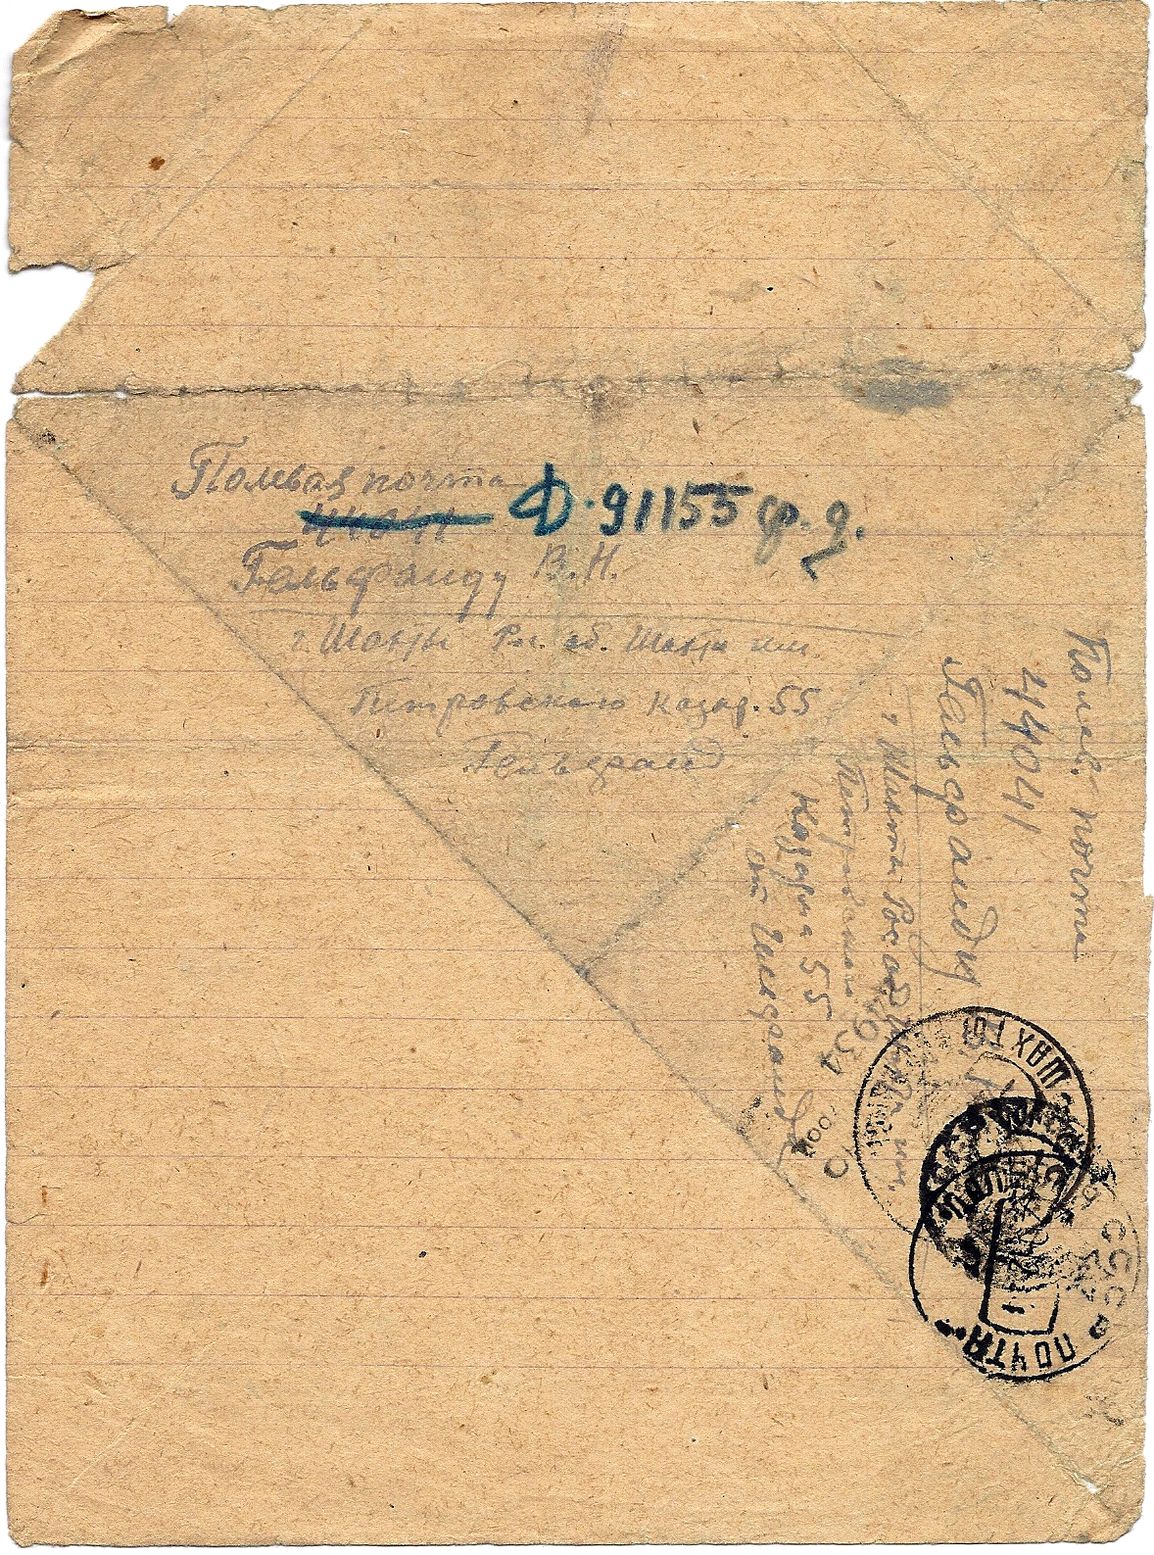 Полевая почта
44041 Д. 91155 ф. д.
Гельфанду В.Н.
г. Шахты Рос. об. Шахта им.
Петровского казар. 55
Гельфанд
Полев. почта
44041
Гельфанду
г. Шахты Рос. об. им.
Петровского
Казарма 55
от Гельфанд
ШАХТЫ
СССР
ПОЧТА